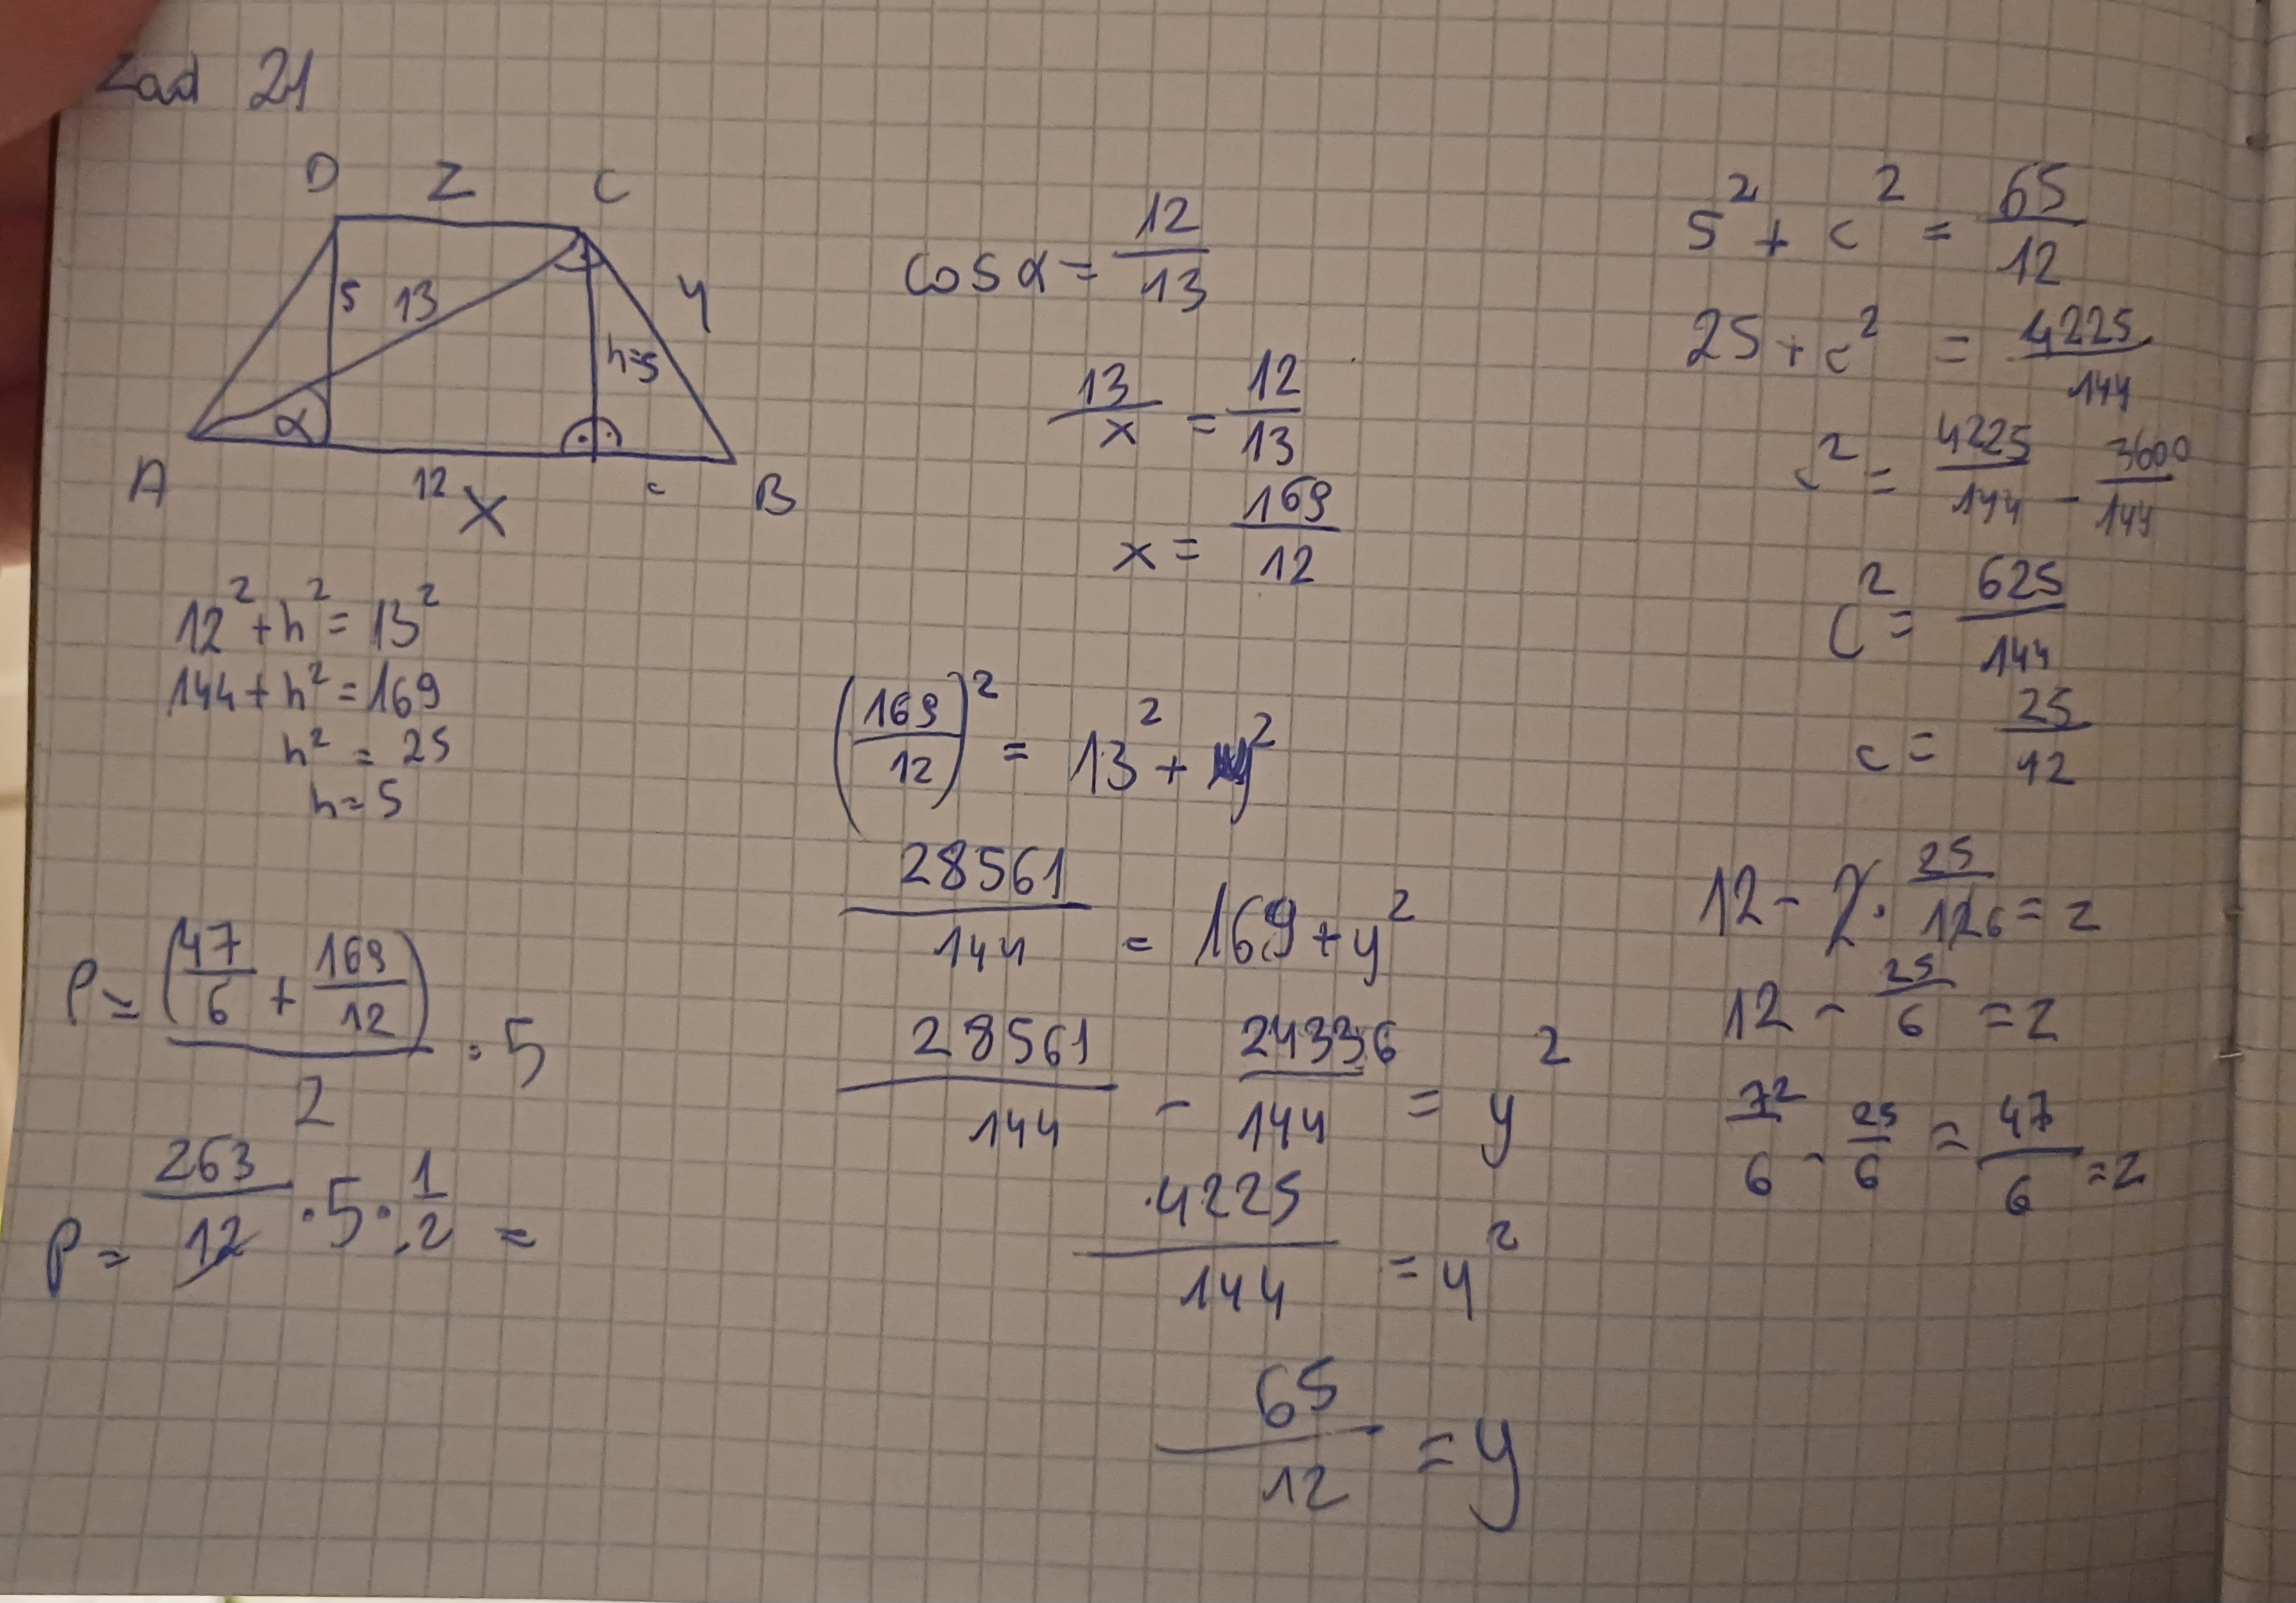 Zad 21
D z C
5 13 y
h=5
α
A 12 x c B
12² + h² = 13²
144 + h² = 169
h² = 25
h = 5
P = (47/6 + 169/12)/2 · 5
P = 263/12 · 5 · 1/2 =
cos α = 12/13
13/x = 12/13
x = 169/12
(169/12)² = 13² + y²
28561/144 = 169 + y²
28561/144 - 24336/144 = y²
4225/144 = y²
65/12 = y
5² + c² = 65/12
25 + c² = 4225/144
c² = 4225/144 - 3600/144
c² = 625/144
c = 25/12
12 - 2 · 25/12 6 = z
12 - 25/6 = z
72/6 - 25/6 = 47/6 = z